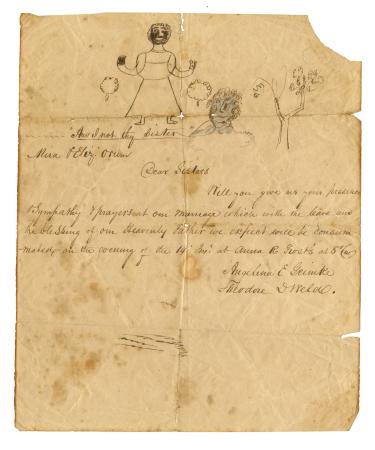 Am I not thy Sister
Mira & Eliz. Orum
Dear Sisters
Will you give us your presence
& Sympathy & prayers at our marriage which with the leave and
the blessing of our Heavenly Father we expect will be consum
mated on the evening of the 14 Inst at Anna R. Frost's at 8
Angelina E Grimke
Theodore D Weld.